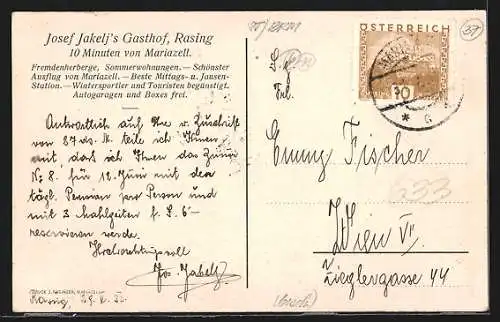 Josef Jakelj's Gasthof, Rasing
10 Minuten von Mariazell.
Fremdenherberge, Sommerwohnungen. — Schönster
Ausflug von Mariazell. — Beste Mittags- u. Jausen-
Station. — Wintersportler und Touristen begünstigt.
Autogaragen und Boxes frei.
Antwortlich auf Ihre w. Zuschrift
von 27. ds. M. teile ich Ihnen
mit, daß ich Ihnen das Zimmer
Nr. 8 für 12. Juni mit den
tägl. Pension per Person und
mit 3 Mahlzeiten f. S. 6-
reservieren werde.
Hochachtungsvoll
Jos. Jakelj
Rasing
ÖSTERREICH
10
Frl.
Emmy Fischer
633
Wien VII
Zieglergasse 44